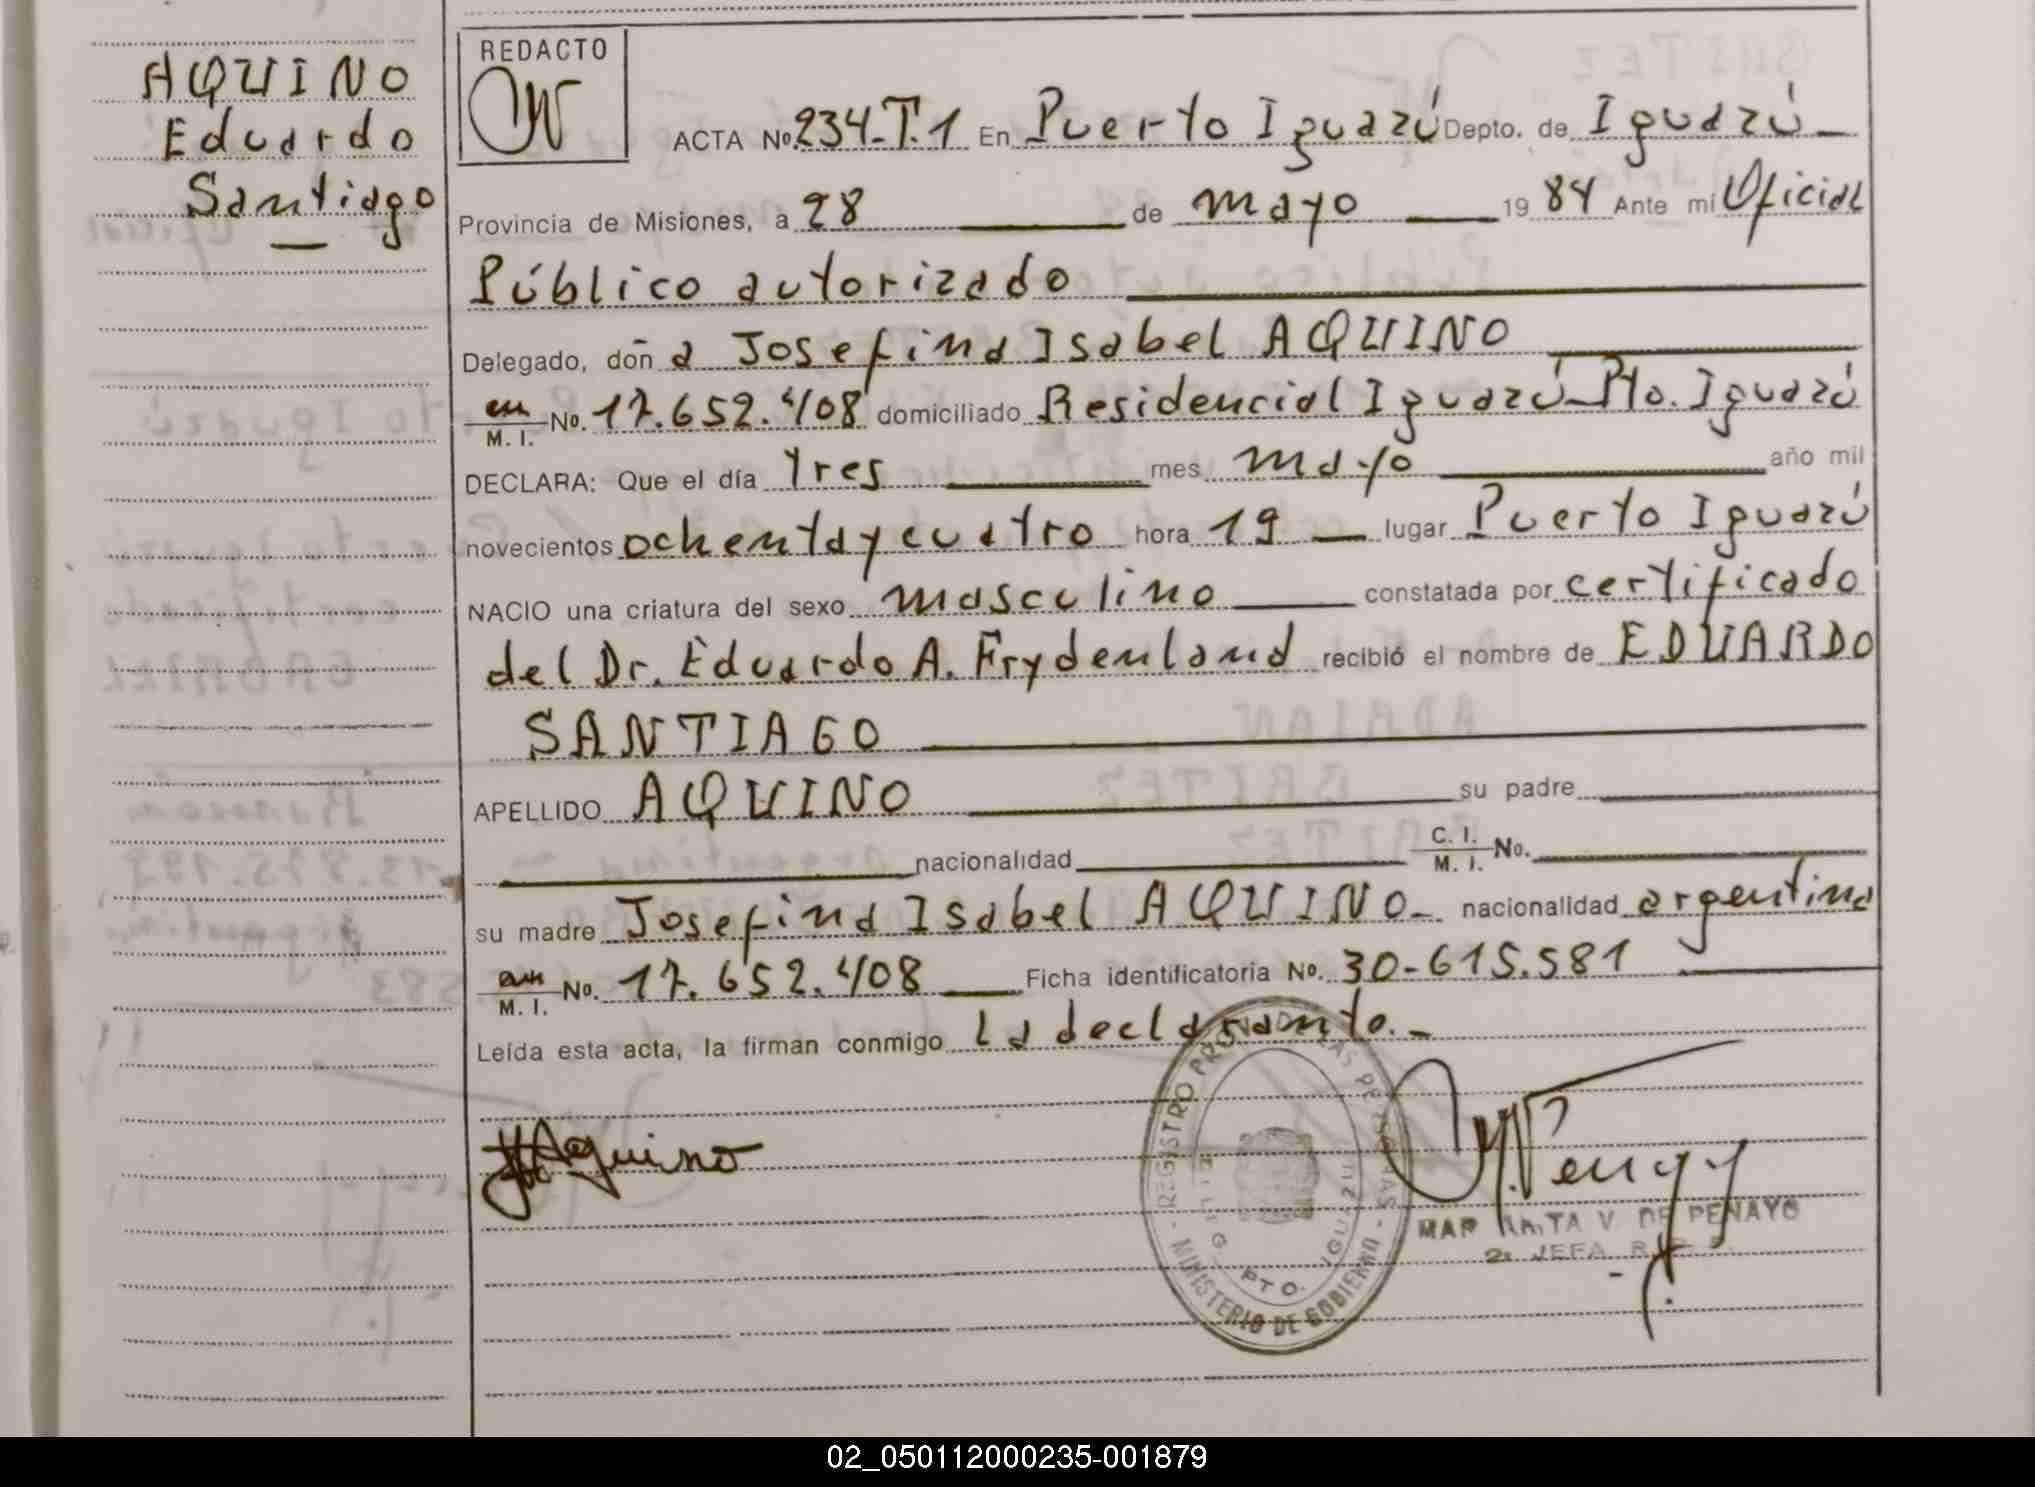 AQUINO
Eduardo
Santiago
REDACTO
ACTA No. 234-T.1 En Puerto Iguazú Depto. de Iguazú
Provincia de Misiones, a 28 de mayo 1984 Ante mí Oficial
Público autorizado
Delegado, don a Josefina Isabel AQUINO
M. I. No. 17.652.408 domiciliado Residencial Iguazú - Pto. Iguazú
DECLARA: Que el día tres mes mayo año mil
novecientos ochenta y cuatro hora 19 lugar Puerto Iguazú
NACIO una criatura del sexo masculino constatada por certificado
del Dr. Eduardo A. Frydenlund recibió el nombre de EDUARDO
SANTIAGO
APELLIDO AQUINO su padre
nacionalidad C. I. M. I. No.
su madre Josefina Isabel AQUINO.- nacionalidad argentina
M. I. No. 17.652.408 Ficha identificatoria No. 30-615.581
Leída esta acta, la firman conmigo la declarante.-
Aquino
REGISTRO DE LAS PERSONAS
MINISTERIO DE GOBIERNO
PTO. IGUAZU
V. DE PENAYO
JEFA
02_050112000235-001879